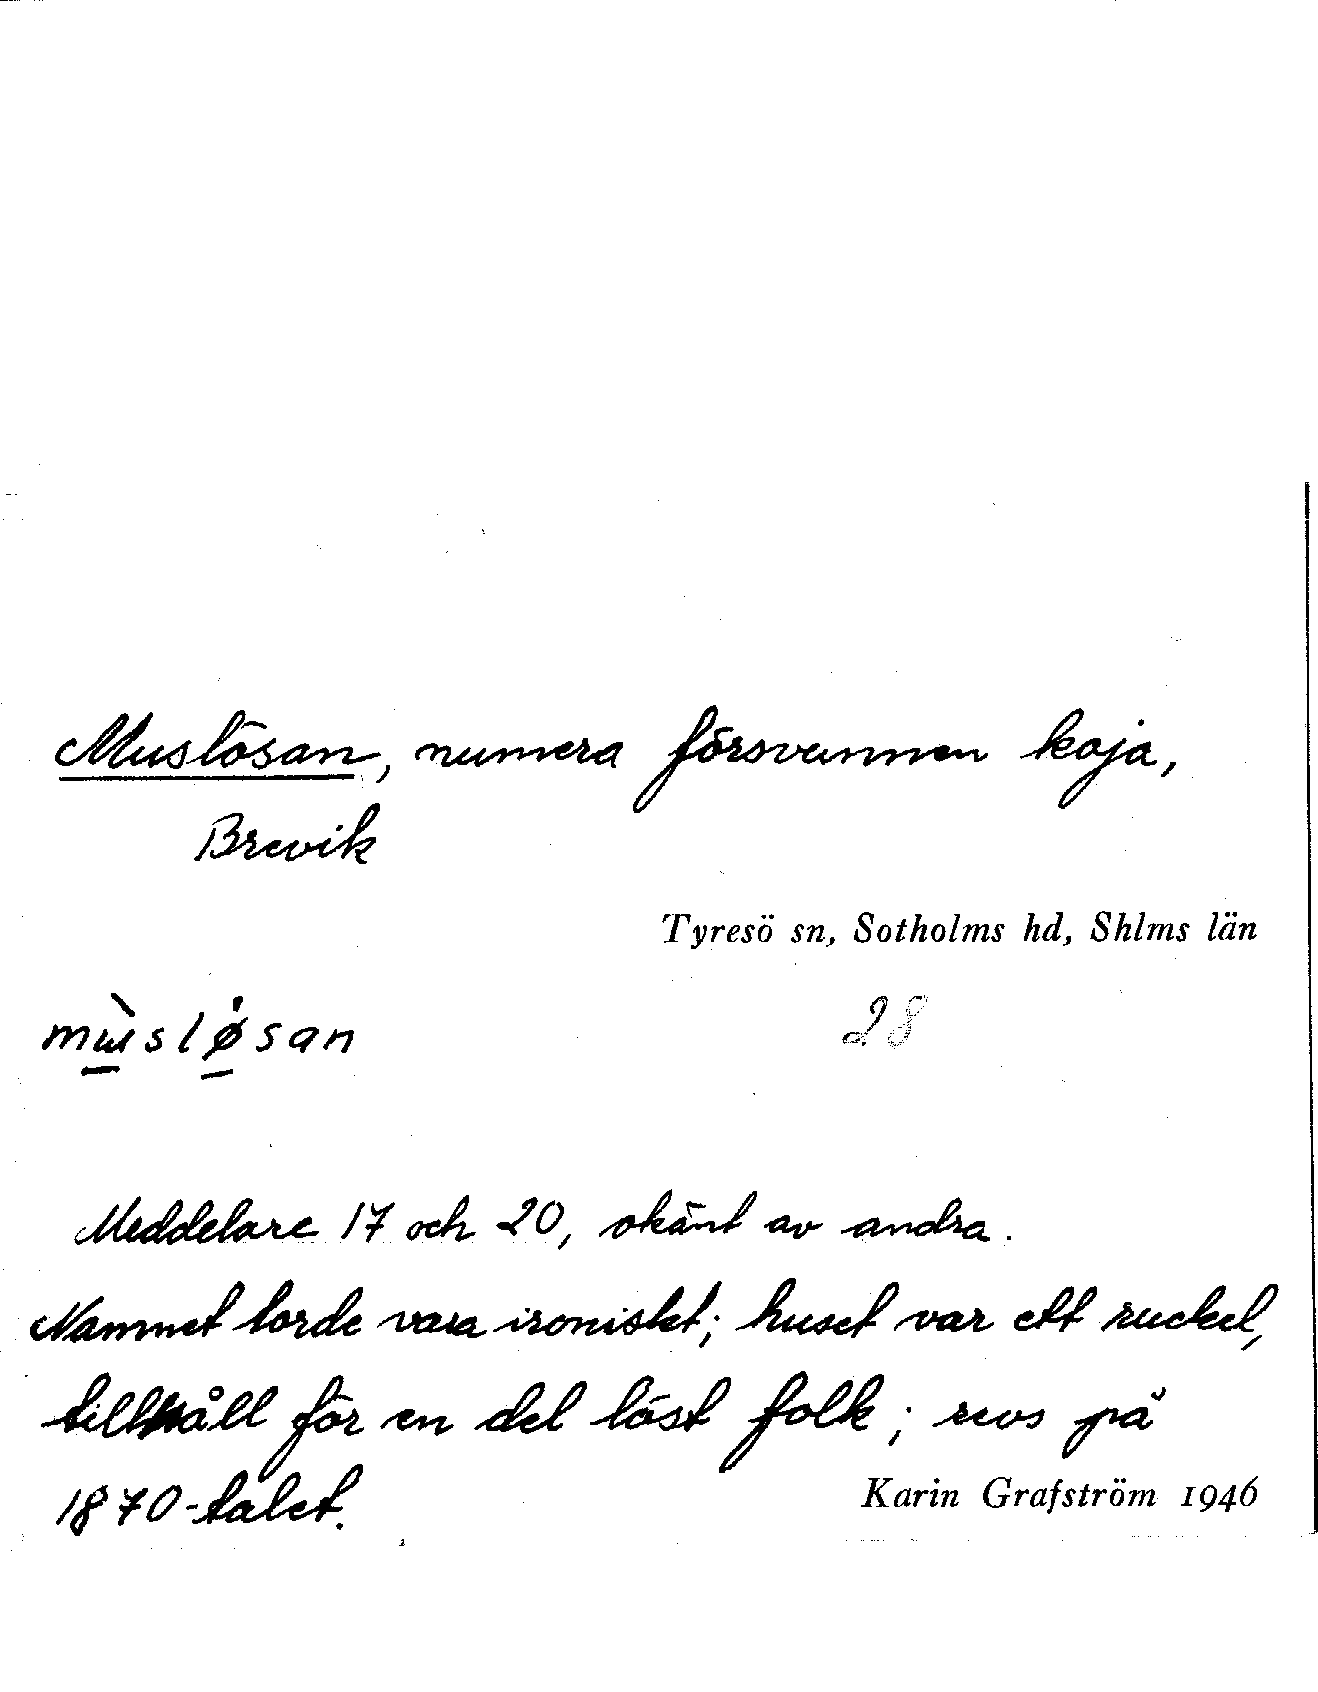 Muslösan, numera försvunnen koja,
Brevik
Tyresö sn, Sotholms hd, Shlms län
mùsløsan 28
Meddelare 17 och 20, okänt av andra.
Namnet torde vara ironiskt; huset var ett ruckel,
tillhåll för en del löst folk; revs på
1870-talet.
Karin Grafström 1946